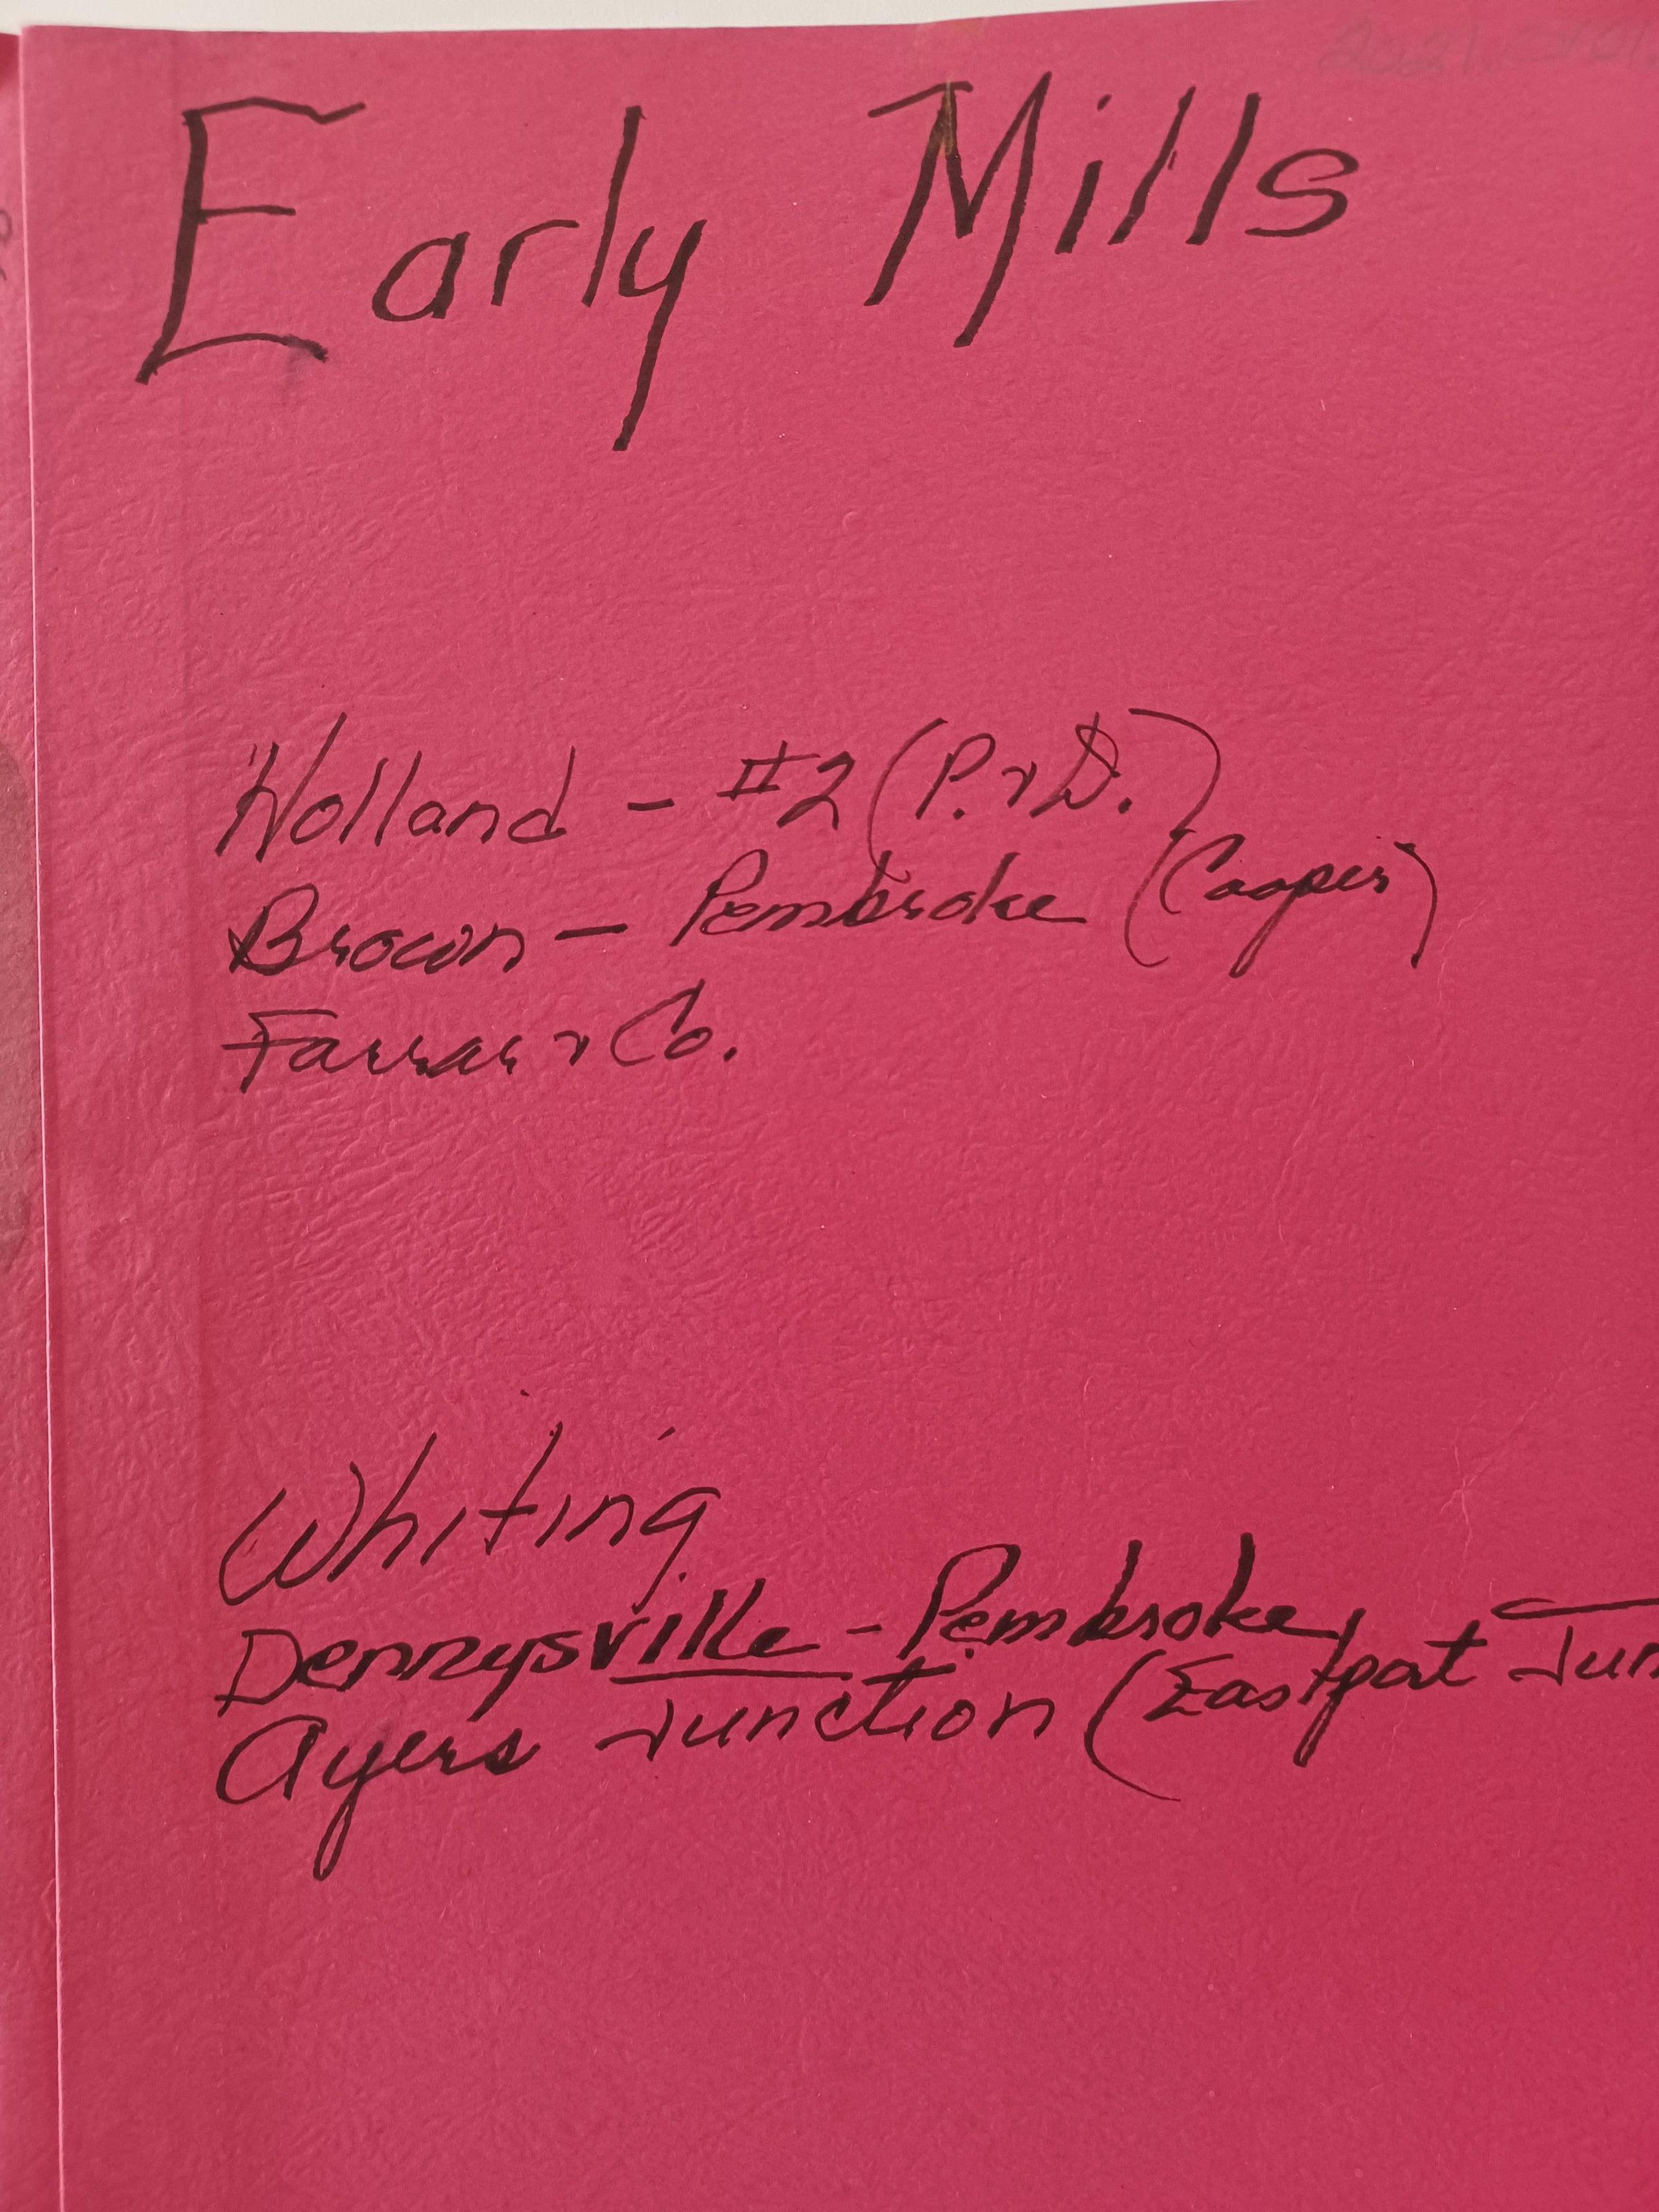 Early Mills
Holland - #2 (P. & D.)
Brown - Pembroke (Cooper)
Farrar & Co.
Whiting
Dennysville - Pembroke,
Ayers Junction (Eastport Jun